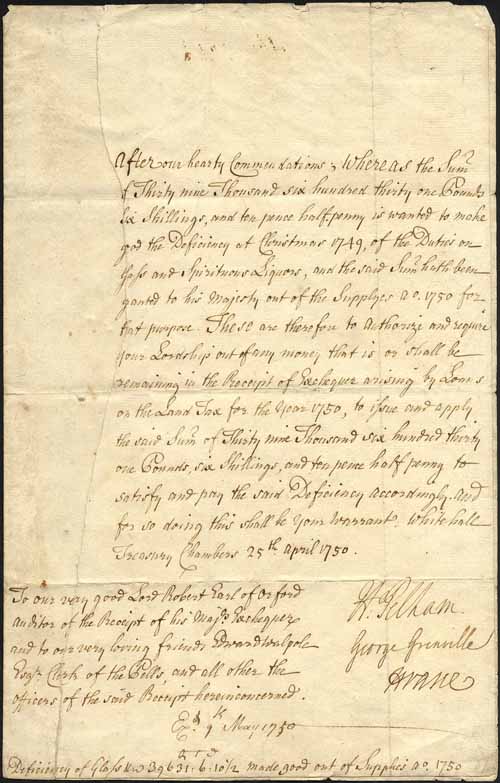 After our hearty Commendations; Whereas the Sum
of Thirty nine Thousand six hundred thirty one Pounds
six Shillings, and ten pence half penny is wanted to make
good the Deficiency at Christmas 1749, of the Duties on
Glass and Spirituous Liquors, and the said Sum hath been
granted to his Majesty out of the Supplyes ao. 1750 for
that purpose. These are therefore to authorize and require
your Lordship out of any money that is or shall be
remaining in the Receipt of Exchequer arising by Loans
on the Land Tax for the Year 1750, to issue and apply
the said Sum of Thirty nine Thousand six hundred thirty
one Pounds, six Shillings, and ten pence half penny to
satisfy and pay the said Deficiency accordingly. And
for so doing this shall be your Warrant. Whitehall
Treasury Chambers 25th April 1750.
To our very good Lord Robert Earl of Orford
Auditor of the Receipt of his Majts Exchequer
and to our very loving friends Edward Walpole
Esqr. Clerk of the Pells, and all other the
officers of the said Receipt herein concerned.
H Pelham
George Grenville
H Vane
9th May 1750
Deficiency of Glass &c 39631.6.10 1/2 made good out of Supplies ao. 1750